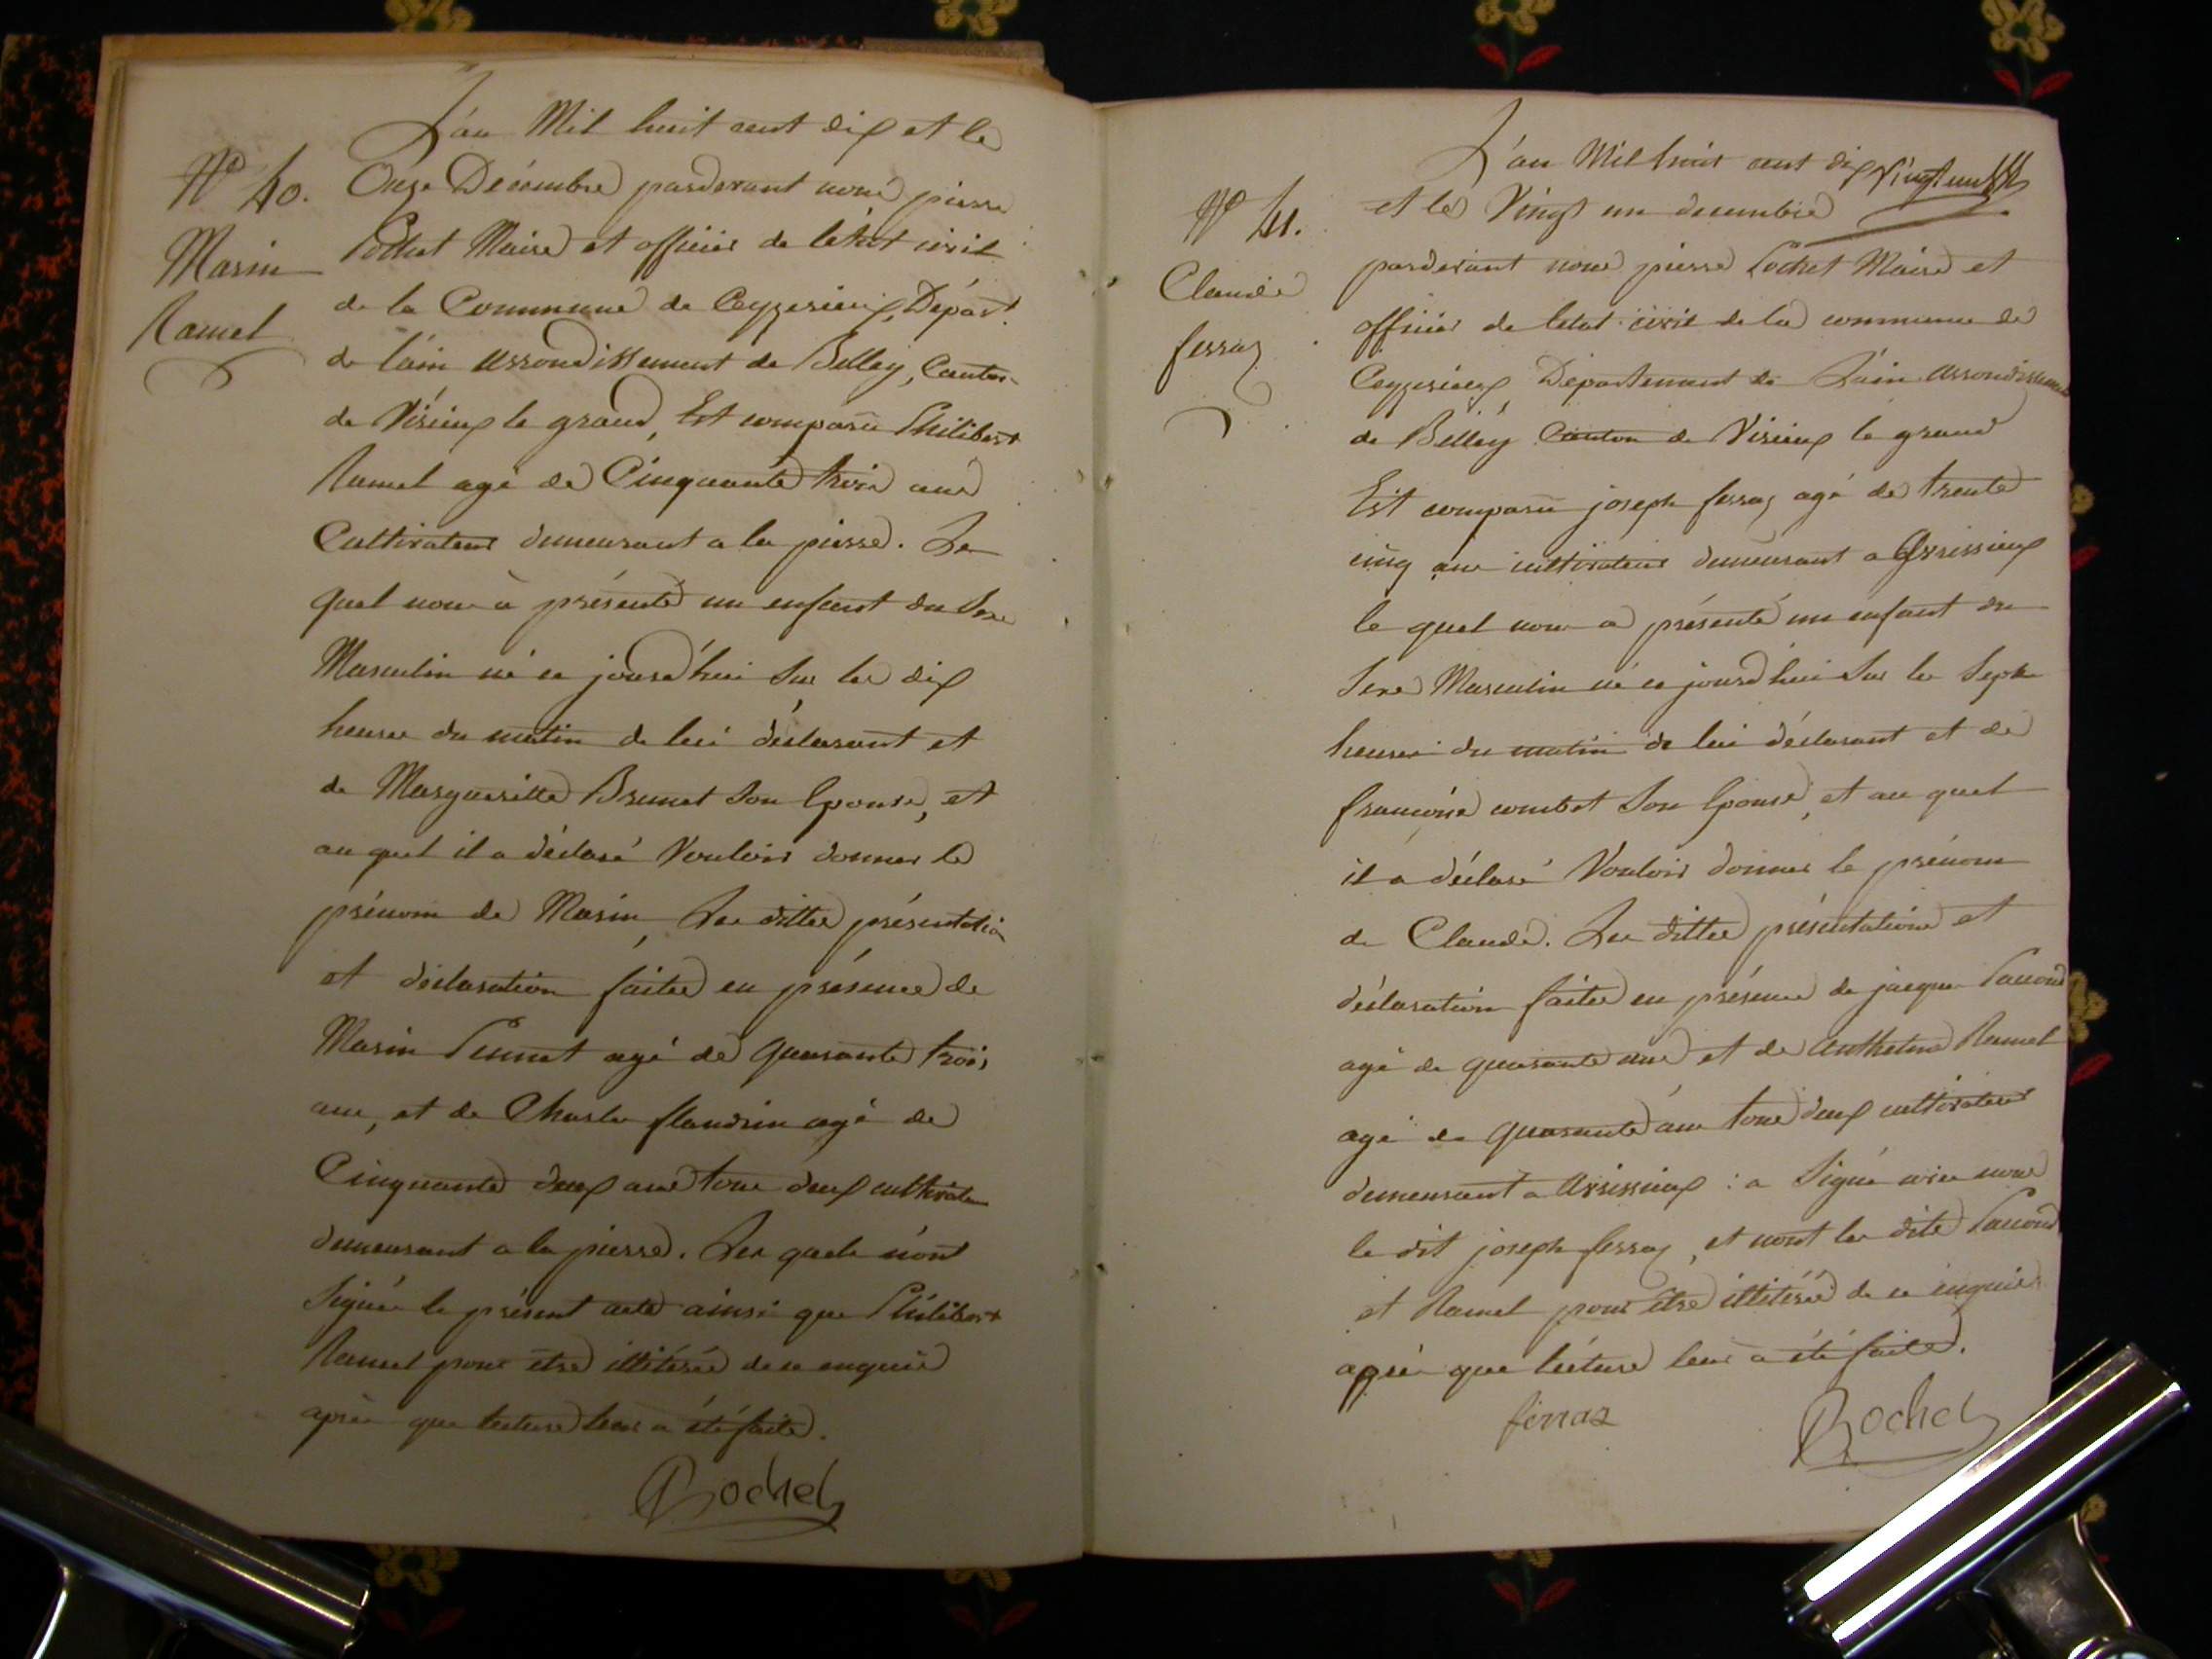 N° 40.
Marin
Ramel
L'an Mil huit cent dix et le
Onze Décembre pardevant nous pierre
Pochet Maire et officier de l'état civil
de la Commune de Ceyzerieux, Départ.
de l'ain arrondissement de Belley, Canton
de Virieux le grand, Est comparu Philibert
Ramel agé de Cinquante trois ans
Cultivateur demeurant a la pierre. Le
quel nous à présenté un enfant du Sexe
Masculin né ce jourd'hui Sur les dix
heures du matin de lui déclarant et
de Margueritte Brunet Son Epouse, et
au quel il a déclaré Vouloir donner le
prénom de Marin, Les dittes présentation
et déclaration faites en présence de
Marin Peunet agé de quarante trois
ans, et de Charles flandrin agé de
Cinquante deux ans tous deux cultivateurs
demeurant a la pierre. Les quels n'ont
Signés le présent acte ainsi que Philibert
Ramel pour être illitérés de ce enquis
après que lecture leur a été faite.
Pochet
N° 41.
Claude
ferraz
L'an Mil huit cent dix
et le Vingt un decembre
pardevant nous pierre Pochet Maire et
officier de l'état civil de la commune de
Ceyzerieux, Département de L'ain arrondissement
de Belley Canton de Virieux le grand
Est comparu joseph ferraz agé de trente
cinq ans cultivateur demeurant a Avrissieux
le quel nous a présenté un enfant du
Sexe Masculin né ce jourd'hui Sur les Sept
heures du matin de lui déclarant et de
françoise combet Son Epouse, et au quel
il a déclaré Vouloir donner le prénom
de Claude. Les dittes présentations et
déclaration faites en présence de jacques Paccoud
agé de quarante ans et de anthelme Ramel
agé de quarante ans tous deux cultivateurs
demeurant a avrissieux : a Signé avec nous
le dit joseph ferraz, et n'ont les dits Paccoud
et Ramel pour être illitérés de ce enquis
après que lécture leur a été faite.
ferraz
Pochet